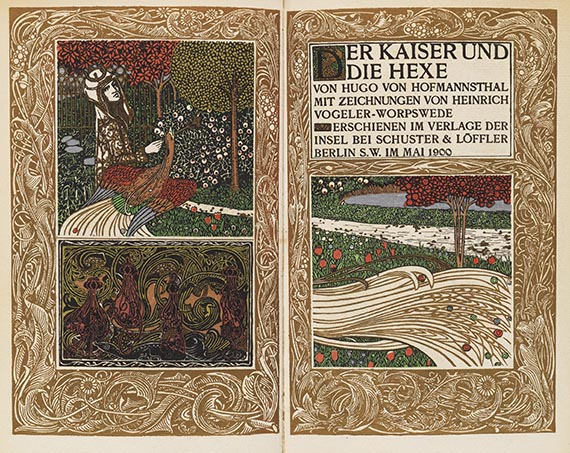 DER KAISER UND
DIE HEXE
VON HUGO VON HOFMANNSTHAL
MIT ZEICHNUNGEN VON HEINRICH
VOGELER-WORPSWEDE
ERSCHIENEN IM VERLAGE DER
INSEL BEI SCHUSTER & LÖFFLER
BERLIN S.W. IM MAI 1900